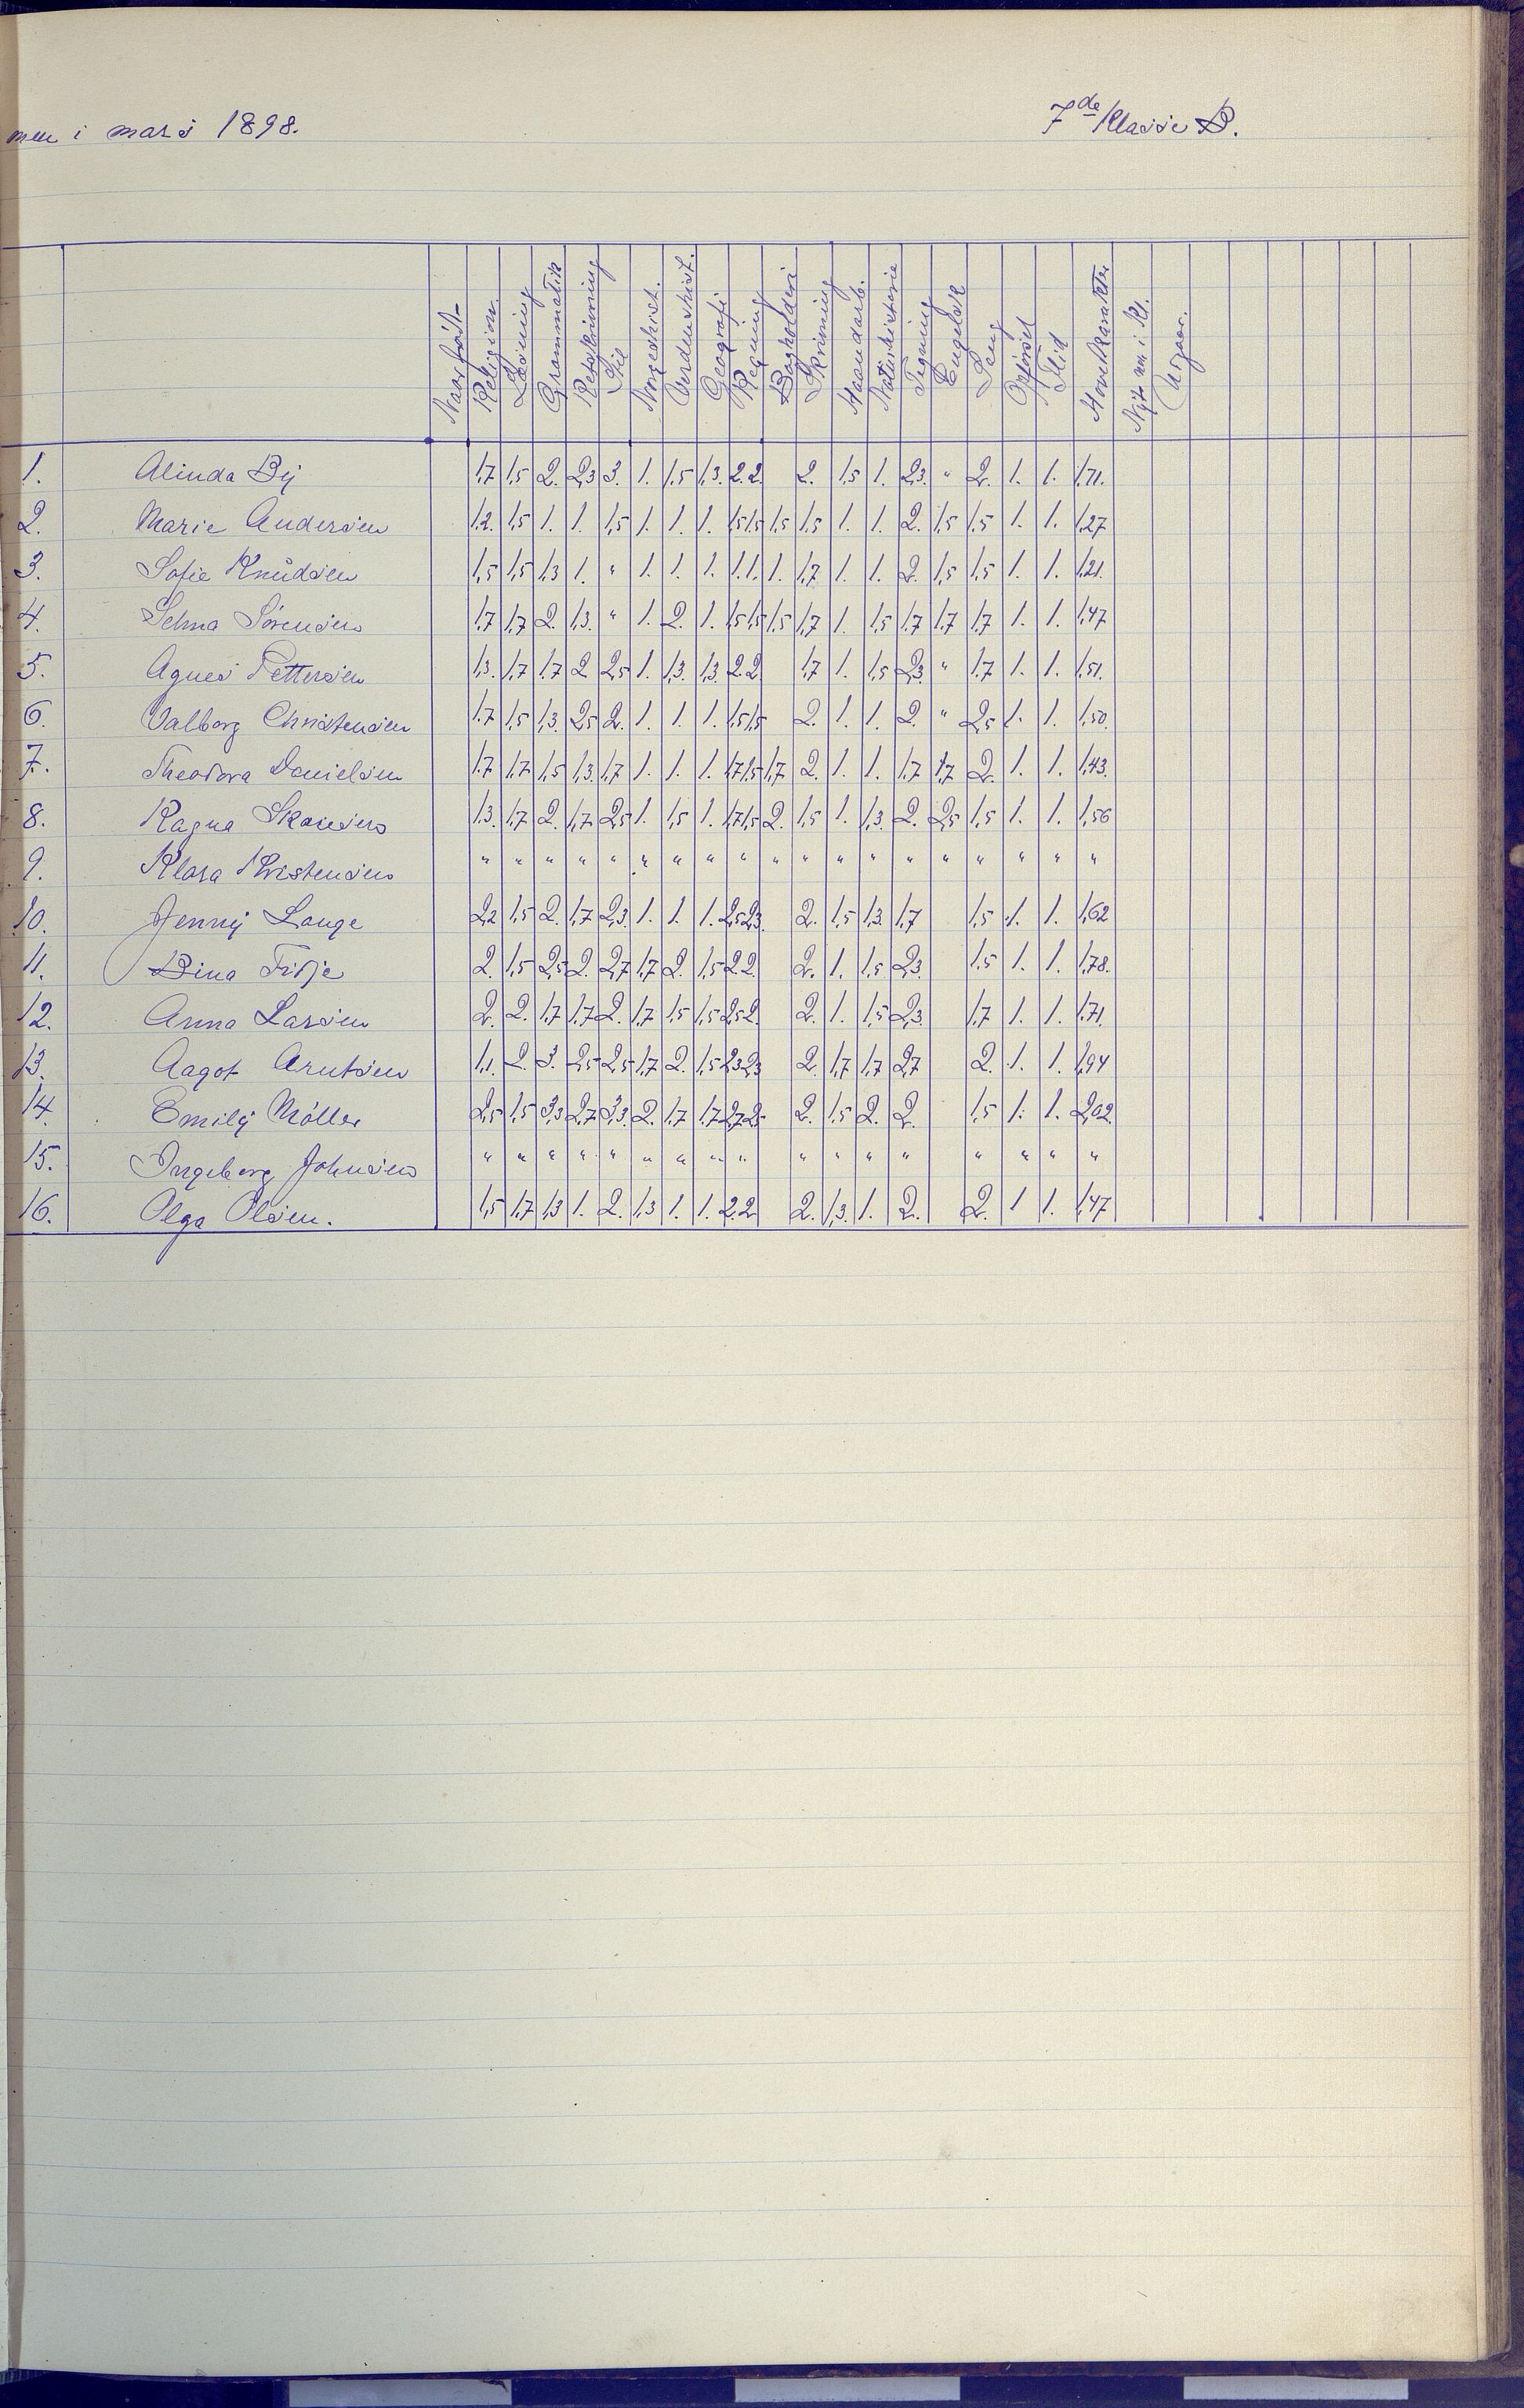 men i mars 1898. 7de Klasse B.
Naar født Religion. Læsning Grammatik Retskrivning Stil Norgeshist. Verdenshist. Geografi Regning Bogholderi Skrivning Haandarb. Naturhistorie Tegning Engelsk Sang Opførsel Flid Hovedkarakter Nyt nr. i Kl. Afgaar.
1. Alinda By 1,7 1,5 2. 2,3 3. 1. 1,5 1,3. 2. 2. 2. 1,5 1. 2,3. " 2. 1. 1. 1,71.
2. Marie Andersen 1,2. 1,5 1. 1. 1,5 1. 1. 1. 1,5 1,5 1,5 1,5 1. 1. 2. 1,5 1,5 1. 1. 1,27
3. Sofie Knudsen 1,5 1,5 1,3 1. " 1. 1. 1. 1. 1. 1. 1,7 1. 1. 2. 1,5 1,5 1. 1. 1,21.
4. Selma Sørensen 1,7 1,7 2. 1,3. " 1. 2. 1. 1,5 1,5 1,5 1,7 1. 1,5 1,7 1,7 1,7 1. 1. 1,47
5. Agnes Pettersen 1,3. 1,7 1,7 2 2,5 1. 1,3. 1,3. 2. 2. 1,7 1. 1,5 2,3 " 1,7 1. 1. 1,51.
6. Valborg Christensen 1,7 1,5 1,3. 2,5 2. 1. 1. 1. 1,5 1,5 2. 1. 1. 2. " 2,5 1. 1. 1,50
7. Theodora Danielsen 1,7 1,7 1,5 1,3. 1,7 1. 1. 1. 1,7 1,5 1,7 2. 1. 1. 1,7 1,7 2. 1. 1. 1,43.
8. Ragna Skansen 1,3. 1,7 2. 1,7 2,5 1. 1,5 1. 1,7 1,5 2. 1,5 1. 1,3. 2. 2,5 1,5 1. 1. 1,56
9. Klara Kristensen " " " " " " " " " " " " " " " " " " "
10. Jenny Lange 2,2 1,5 2. 1,7 2,3. 1. 1. 1. 2,5 2,3. 2. 1,5 1,3. 1,7 1,5 1. 1. 1,62
11. Bina Tidje 2. 1,5 2,5 2. 2,7 1,7 2. 1,5 2. 2. 2. 1. 1,5 2,3. 1,5 1. 1. 1,78.
12. Anna Larsen 2. 2. 1,7 1,7 2. 1,7 1,5 1,5 2,5 2. 2. 1. 1,5 2,3. 1,7 1. 1. 1,71.
13. Aagot Arntsen 1,1. 2. 3. 2,5 2,5 1,7 2. 1,5 2,3 2,3 2. 1,7 1,7 2,7 2. 1. 1. 1,94
14. Emily Møller 2,5 1,5 3,3 2,7 3,3. 2. 1,7 1,7 2,7 2,5 2. 1,5 2. 2. 1,5 1. 1. 2,02.
15. Ingeborg Johnsen " " " " " " " " " " " " " " " " "
16. Olga Olsen. 1,5 1,7 1,3 1. 2. 1,3 1. 1. 2. 2. 2. 1,3. 1. 2. 2. 1 1. 1,47